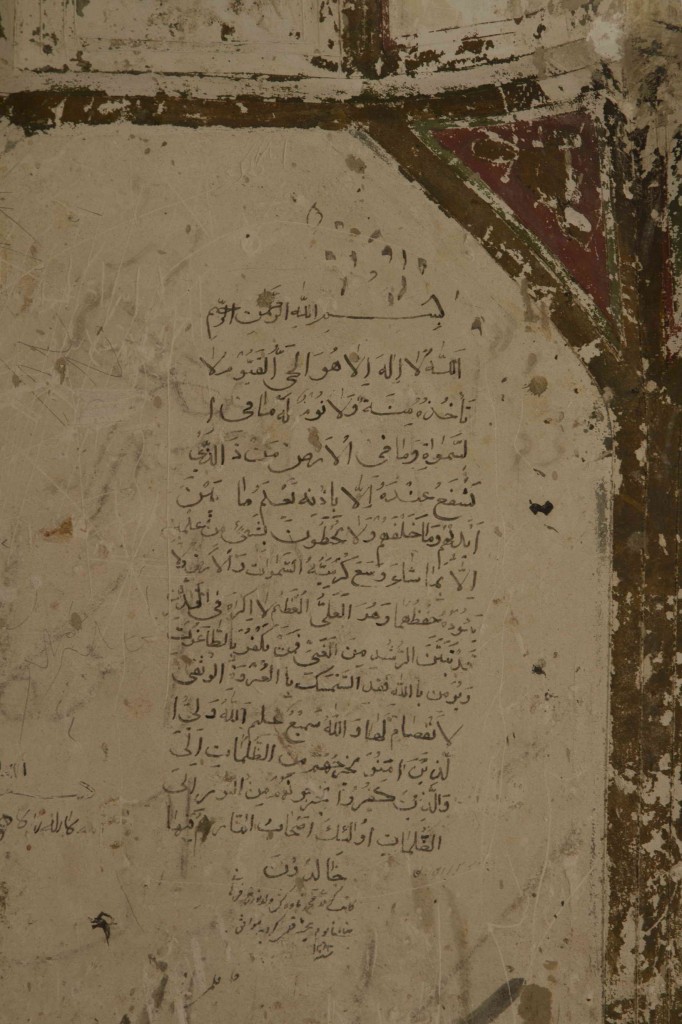 بسم الله الرحمن الرحيم
الله لا اله الا هو الحي القيوم لا
تاخذه سنة ولا نوم له ما في ا
لسموات وما في الارض من ذالذي
يشفع عنده الا باذنه يعلم ما بين
ايديهم وما خلفهم ولا يحيطون بشيء من علمه
الا بما شاء وسع كرسيه السموات والارض ولا
يئوده حفظهما وهو العلي العظيم لا اكراه في الدين
قد تبين الرشد من الغي فمن يكفر بالطاغوت
ويؤمن بالله فقد استمسك با العروة الوثقى
لا انفصام لها والله سميع عليم الله ولي ا
لذين امنو يخرجهم من الظلمات الى
والذين كفروا يخرجونهم من النور الى
الظلمات اولئك اصحاب النار هم فيها
خالدون